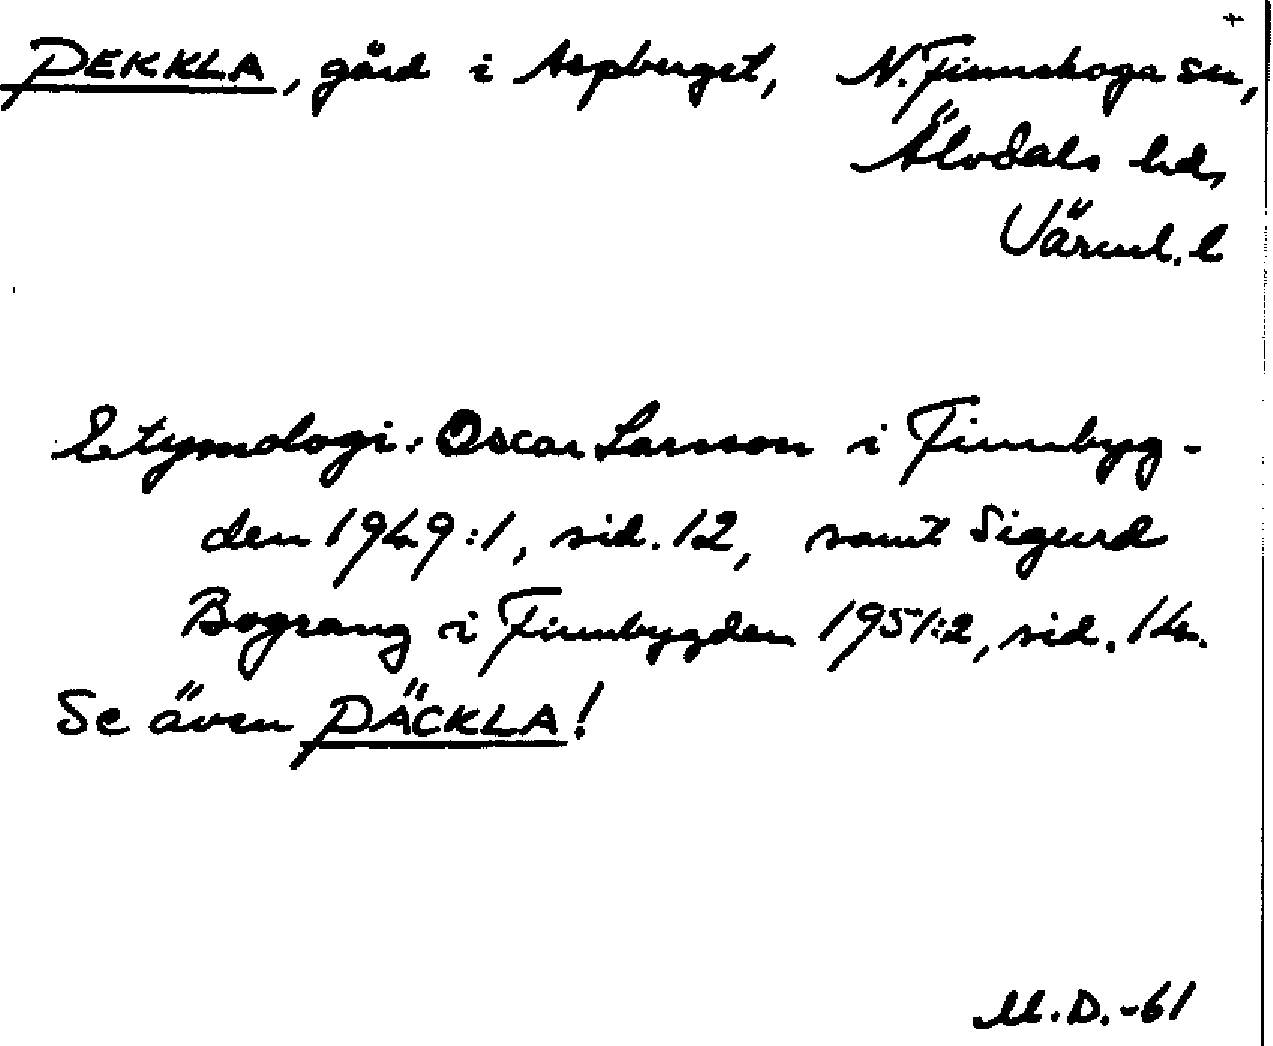 +
PEKKLA, gård i Aspberget, N. Finnskoga sn,
Älvdals hd,
Värml. l
Etymologi: Oscar Larsson i Finnbyg-
den 1949:1, sid. 12, samt Sigurd
Bograng i Finnbygden 1951:2, sid. 14.
Se även PÄCKLA!
M.D.-61